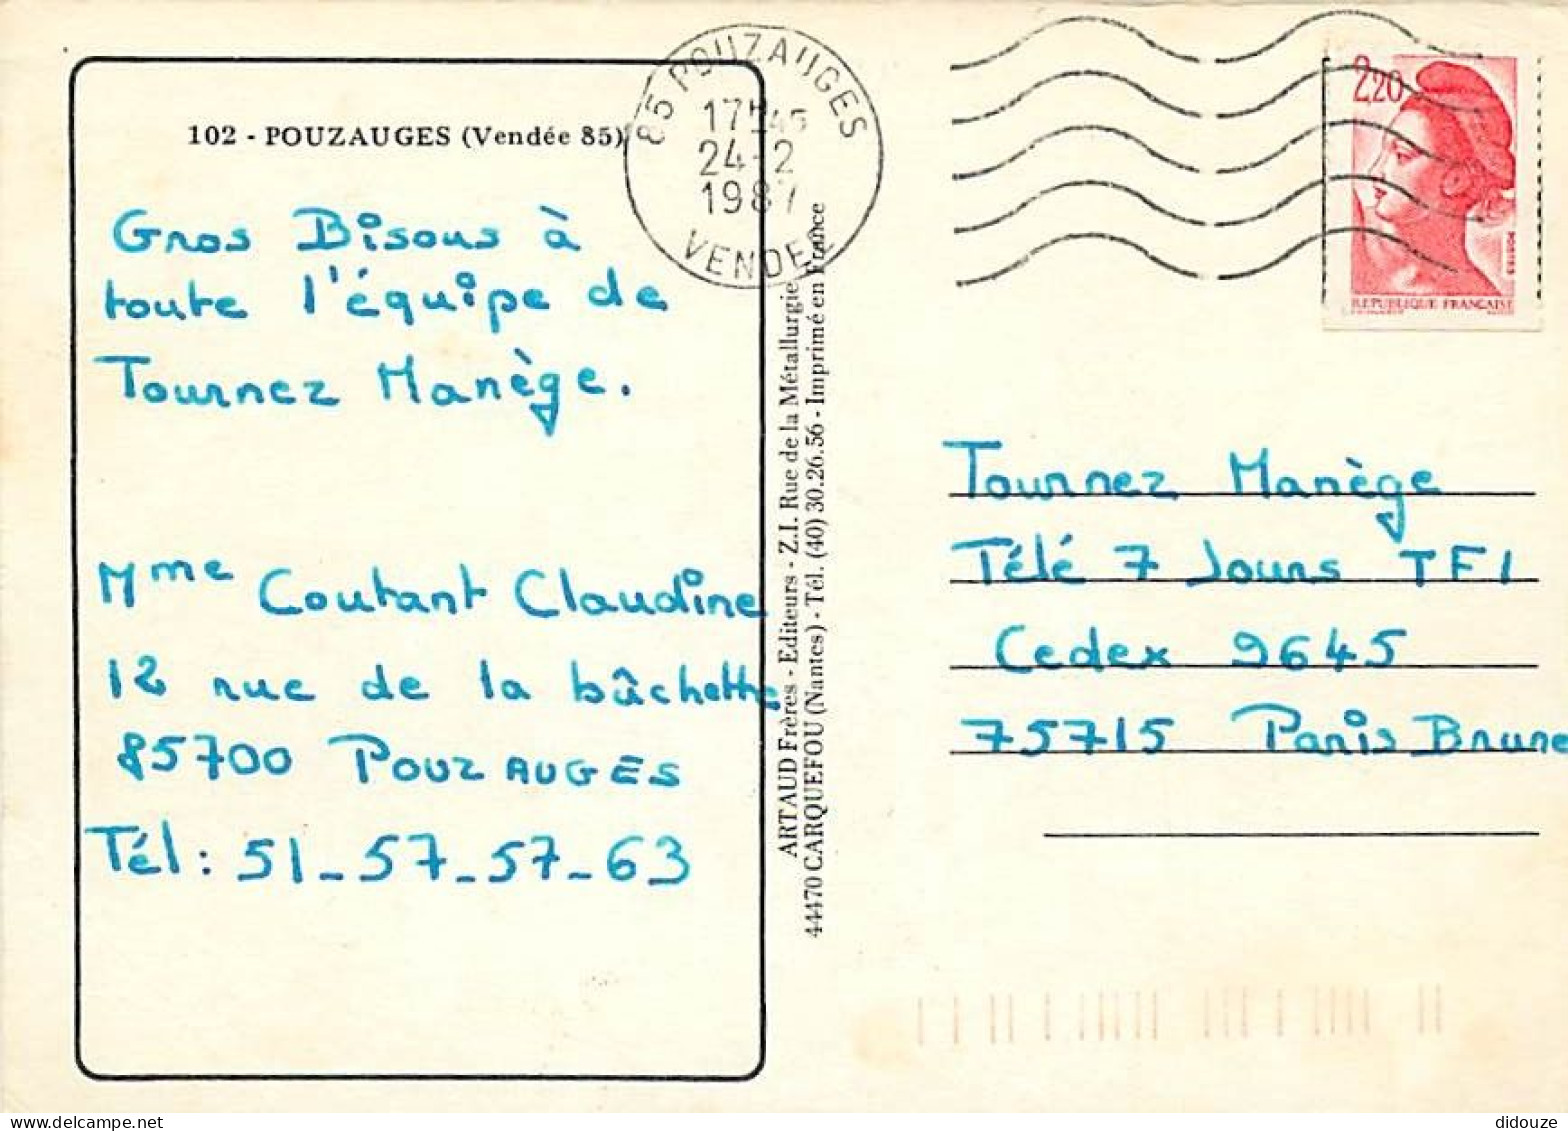 102 - POUZAUGES (Vendée 85)
Gros Bisous à
toute l'équipe de
Tournez Manège.
Mme Coutant Claudine
12 rue de la bûchette
85700 POUZAUGES
Tél : 51_57_57_63
ARTAUD Frères - Editeurs - Z.I. Rue de la Métallurgie
44470 CARQUEFOU (Nantes) - Tél. (40) 30.26.56 - Imprimé en France
85 POUZAUGES
17H45
24-2
1987
VENDEE
2,20
POSTES
REPUBLIQUE FRANÇAISE
Tournez Manège
Télé 7 Jours TF1
Cedex 9645
75715 Paris Brune
didouze